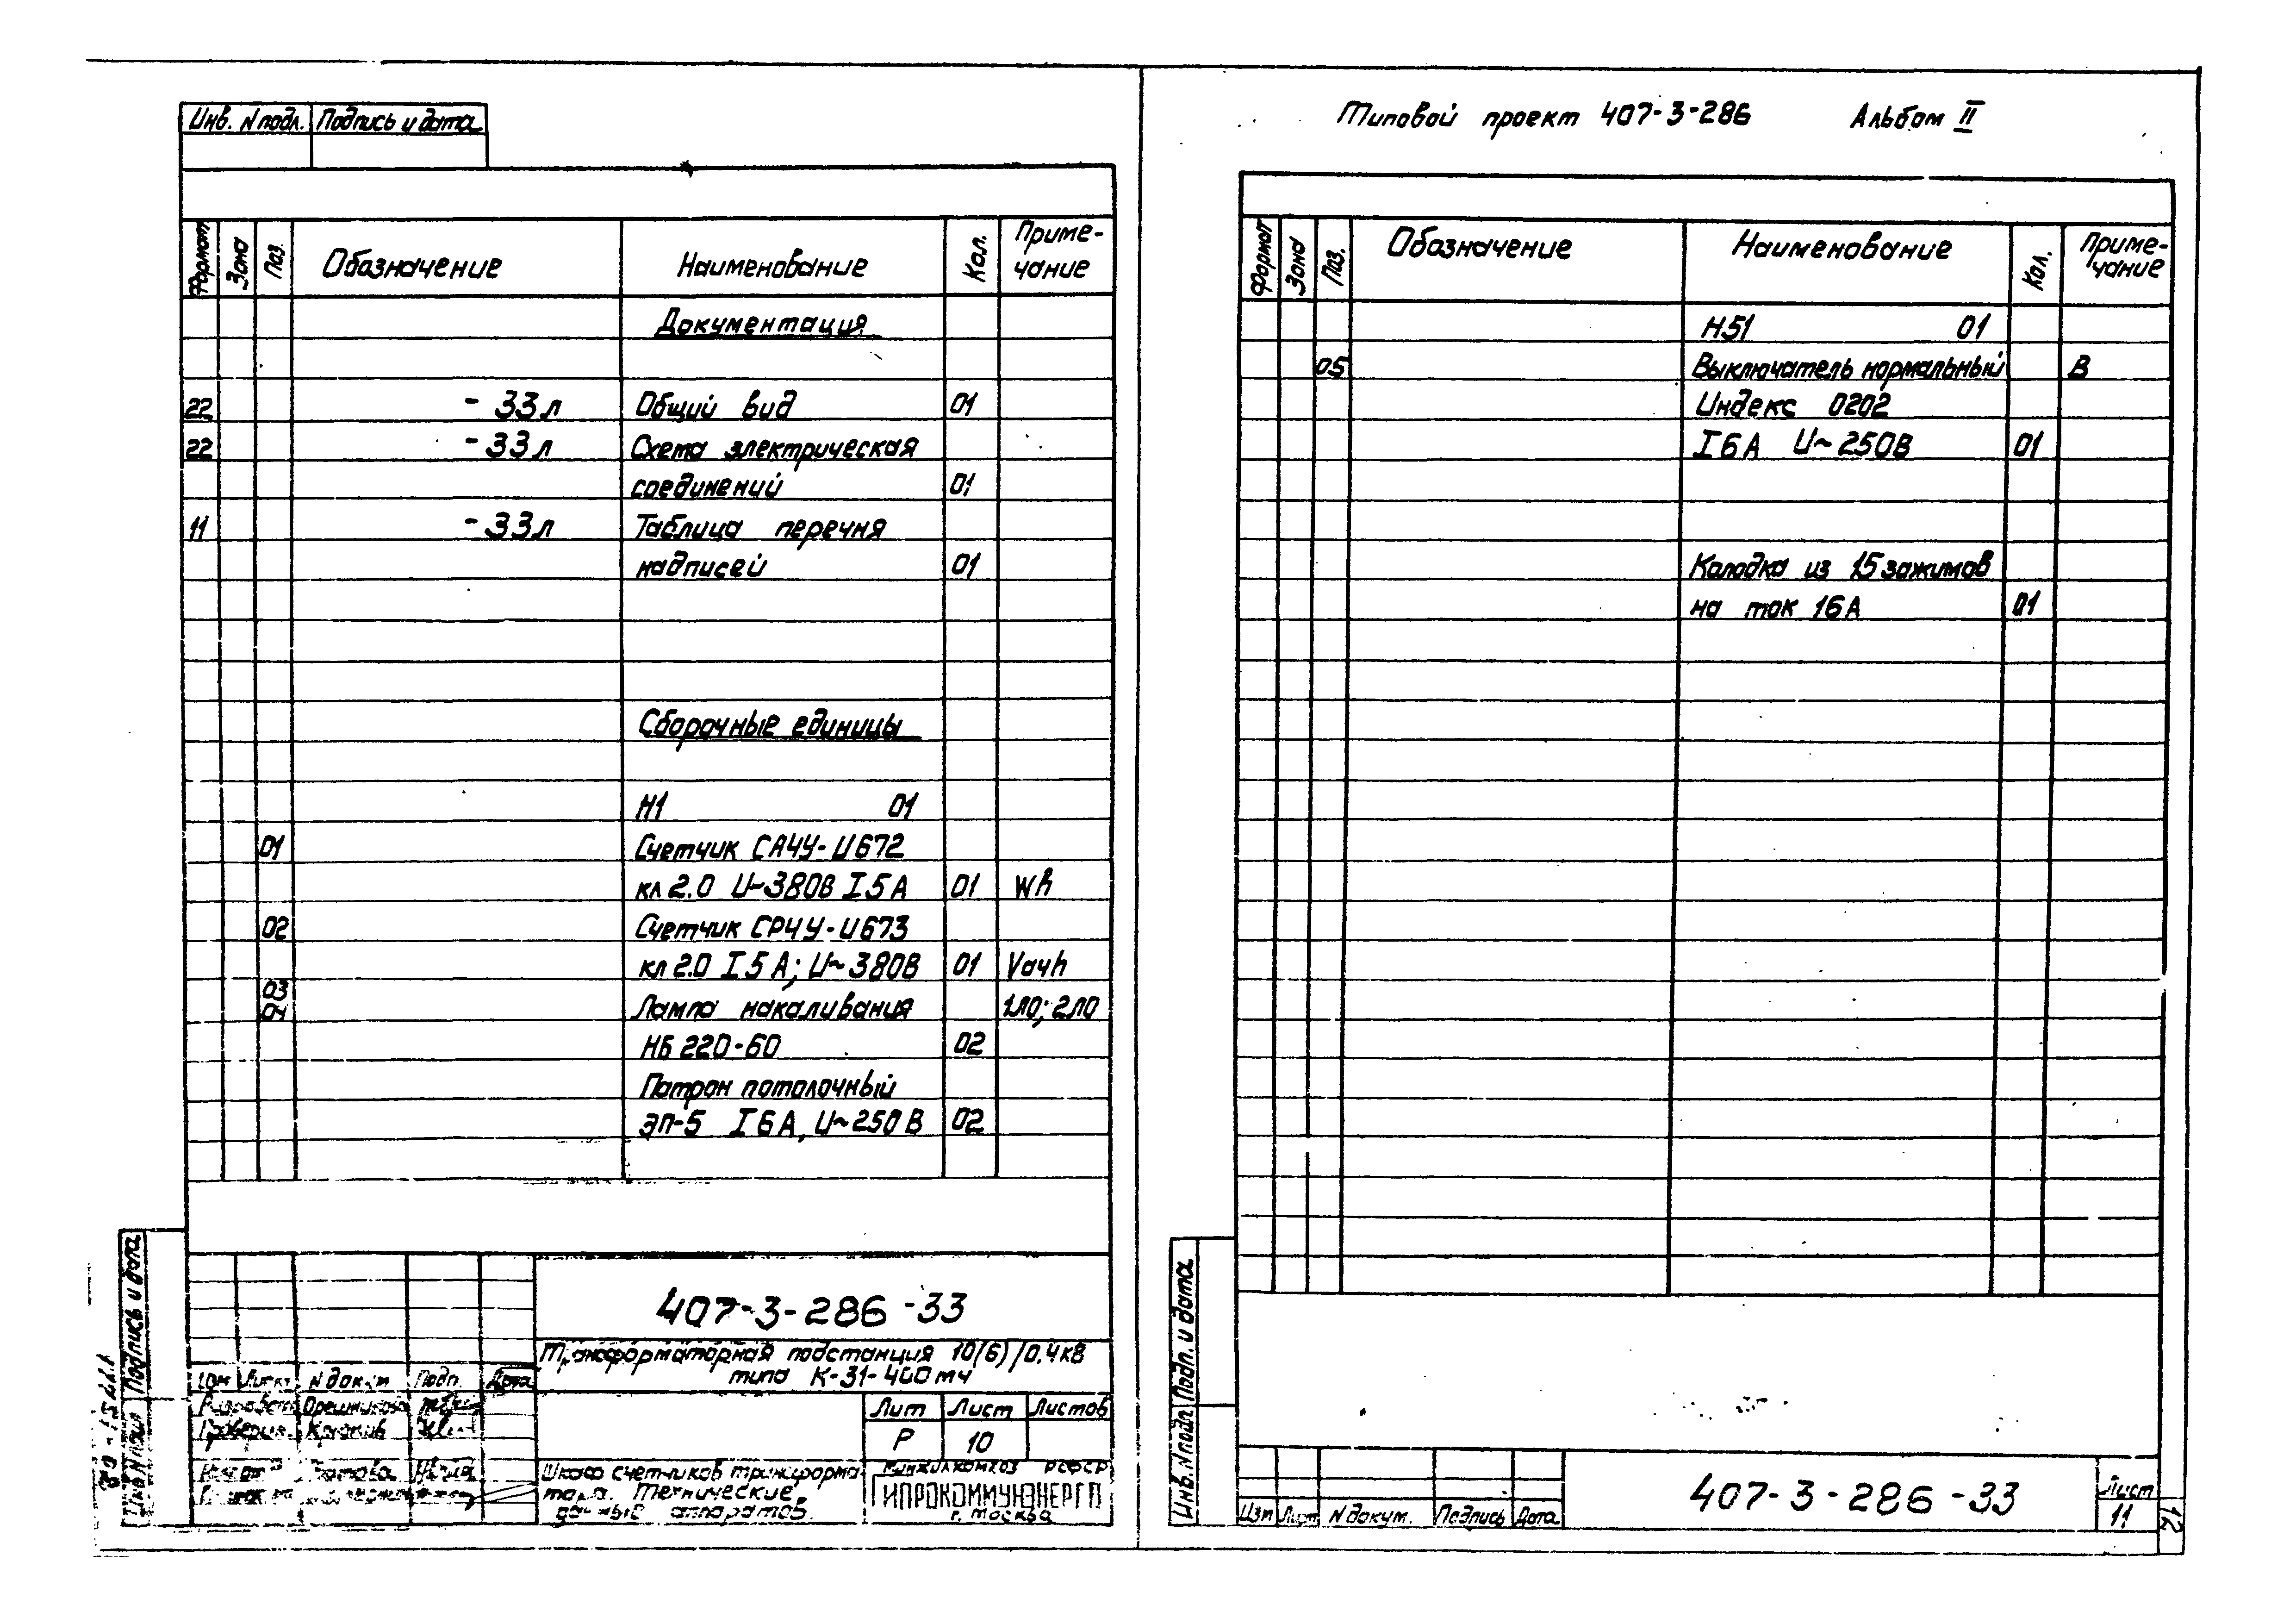 Инв. N подл. Подпись и дата
Формат Зона Поз. Обозначение Наименование Кол. Приме-
чание
Документация
22 - 33л Общий вид 01
22 - 33л Схема электрическая
соединений 01
11 - 33л Таблица перечня
надписей 01
Сборочные единицы
Н1 01
01 Счетчик СА4У-И672
кл 2.0 U~380В I 5А 01 Wh
02 Счетчик СР4У-И673
кл 2.0 I 5А; U~380В 01 Varh
03
04 Лампа накаливания 1ЛО; 2ЛО
НБ 220-60 02
Патрон потолочный
ЭП-5 I 6А, U~250В 02
407-3-286-33
Трансформаторная подстанция 10(6)/0.4кВ
типа К-31-400 м4
Изм Лист N докум Подп. Дата
Лит Лист Листов
Р 10
Шкаф счетчиков трансформа-
тора. Технические
данные аппаратов.
Минжилкомхоз РСФСР
ГИПРОКОММУНЭНЕРГО
г. Москва
Инв. N подл Подпись и дата
Типовой проект 407-3-286 Альбом II
Формат Зона Поз. Обозначение Наименование Кол. Приме-
чание
Н51 01
05 Выключатель нормальный В
Индекс 0202
I 6А U~250В 01
Колодка из 15 зажимов
на ток 16А 01
Инв. N подл Подп. и дата
Изм Лист N докум. Подпись Дата
407-3-286-33
Лист
11
12